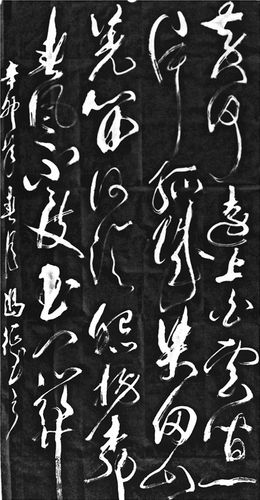 黄河远上白云间一
片孤城万仞山
羌笛何须怨杨柳
春风不度玉门关
辛卯年春月